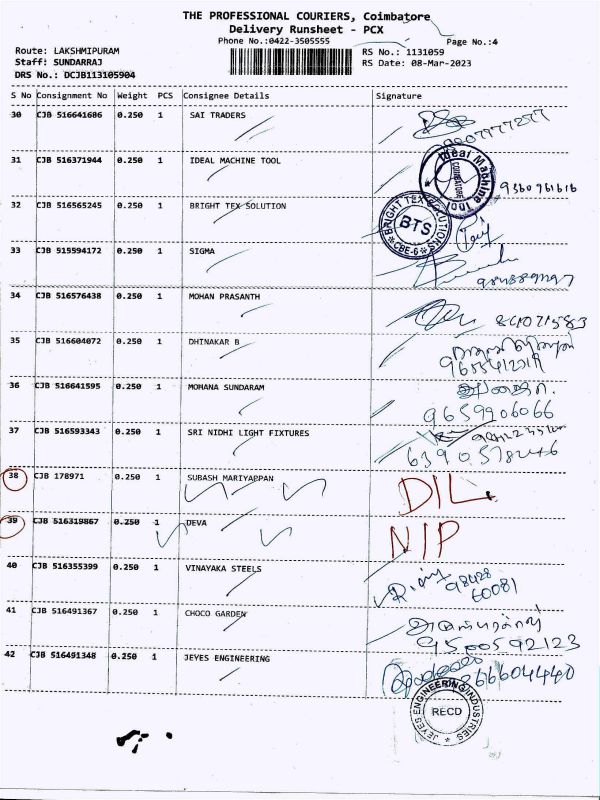 THE PROFESSIONAL COURIERS, Coimbatore
Delivery Runsheet - PCX
Phone No.:0422-3505555
Page No.:4
Route: LAKSHMIPURAM
RS No.: 1131059
Staff: SUNDARRAJ
RS Date: 08-Mar-2023
DRS No.: DCJB113105904
S No Consignment No Weight PCS Consignee Details Signature
30 CJB 516641686 0.250 1 SAI TRADERS
31 CJB 516371944 0.250 1 IDEAL MACHINE TOOL Ideal Machine Tool COIMBATORE 9360761616
32 CJB 516565245 0.250 1 BRIGHT TEX SOLUTION BRIGHT TEX SOLUTIONS BTS CBE-6
33 CJB 515594172 0.250 1 SIGMA
34 CJB 516576438 0.250 1 MOHAN PRASANTH
35 CJB 516604072 0.250 1 DHINAKAR B
36 CJB 516641595 0.250 1 MOHANA SUNDARAM 9659906066
37 CJB 516593343 0.250 1 SRI NIDHI LIGHT FIXTURES
38 CJB 178971 0.250 1 SUBASH MARIYAPPAN DIL
39 CJB 516319867 0.250 1 DEVA NIP
40 CJB 516355399 0.250 1 VINAYAKA STEELS 98428
60081
41 CJB 516491367 0.250 1 CHOCO GARDEN
9500592123
42 CJB 516491348 0.250 1 JEYES ENGINEERING
JEYES ENGINEERING INDUSTRIES RECD